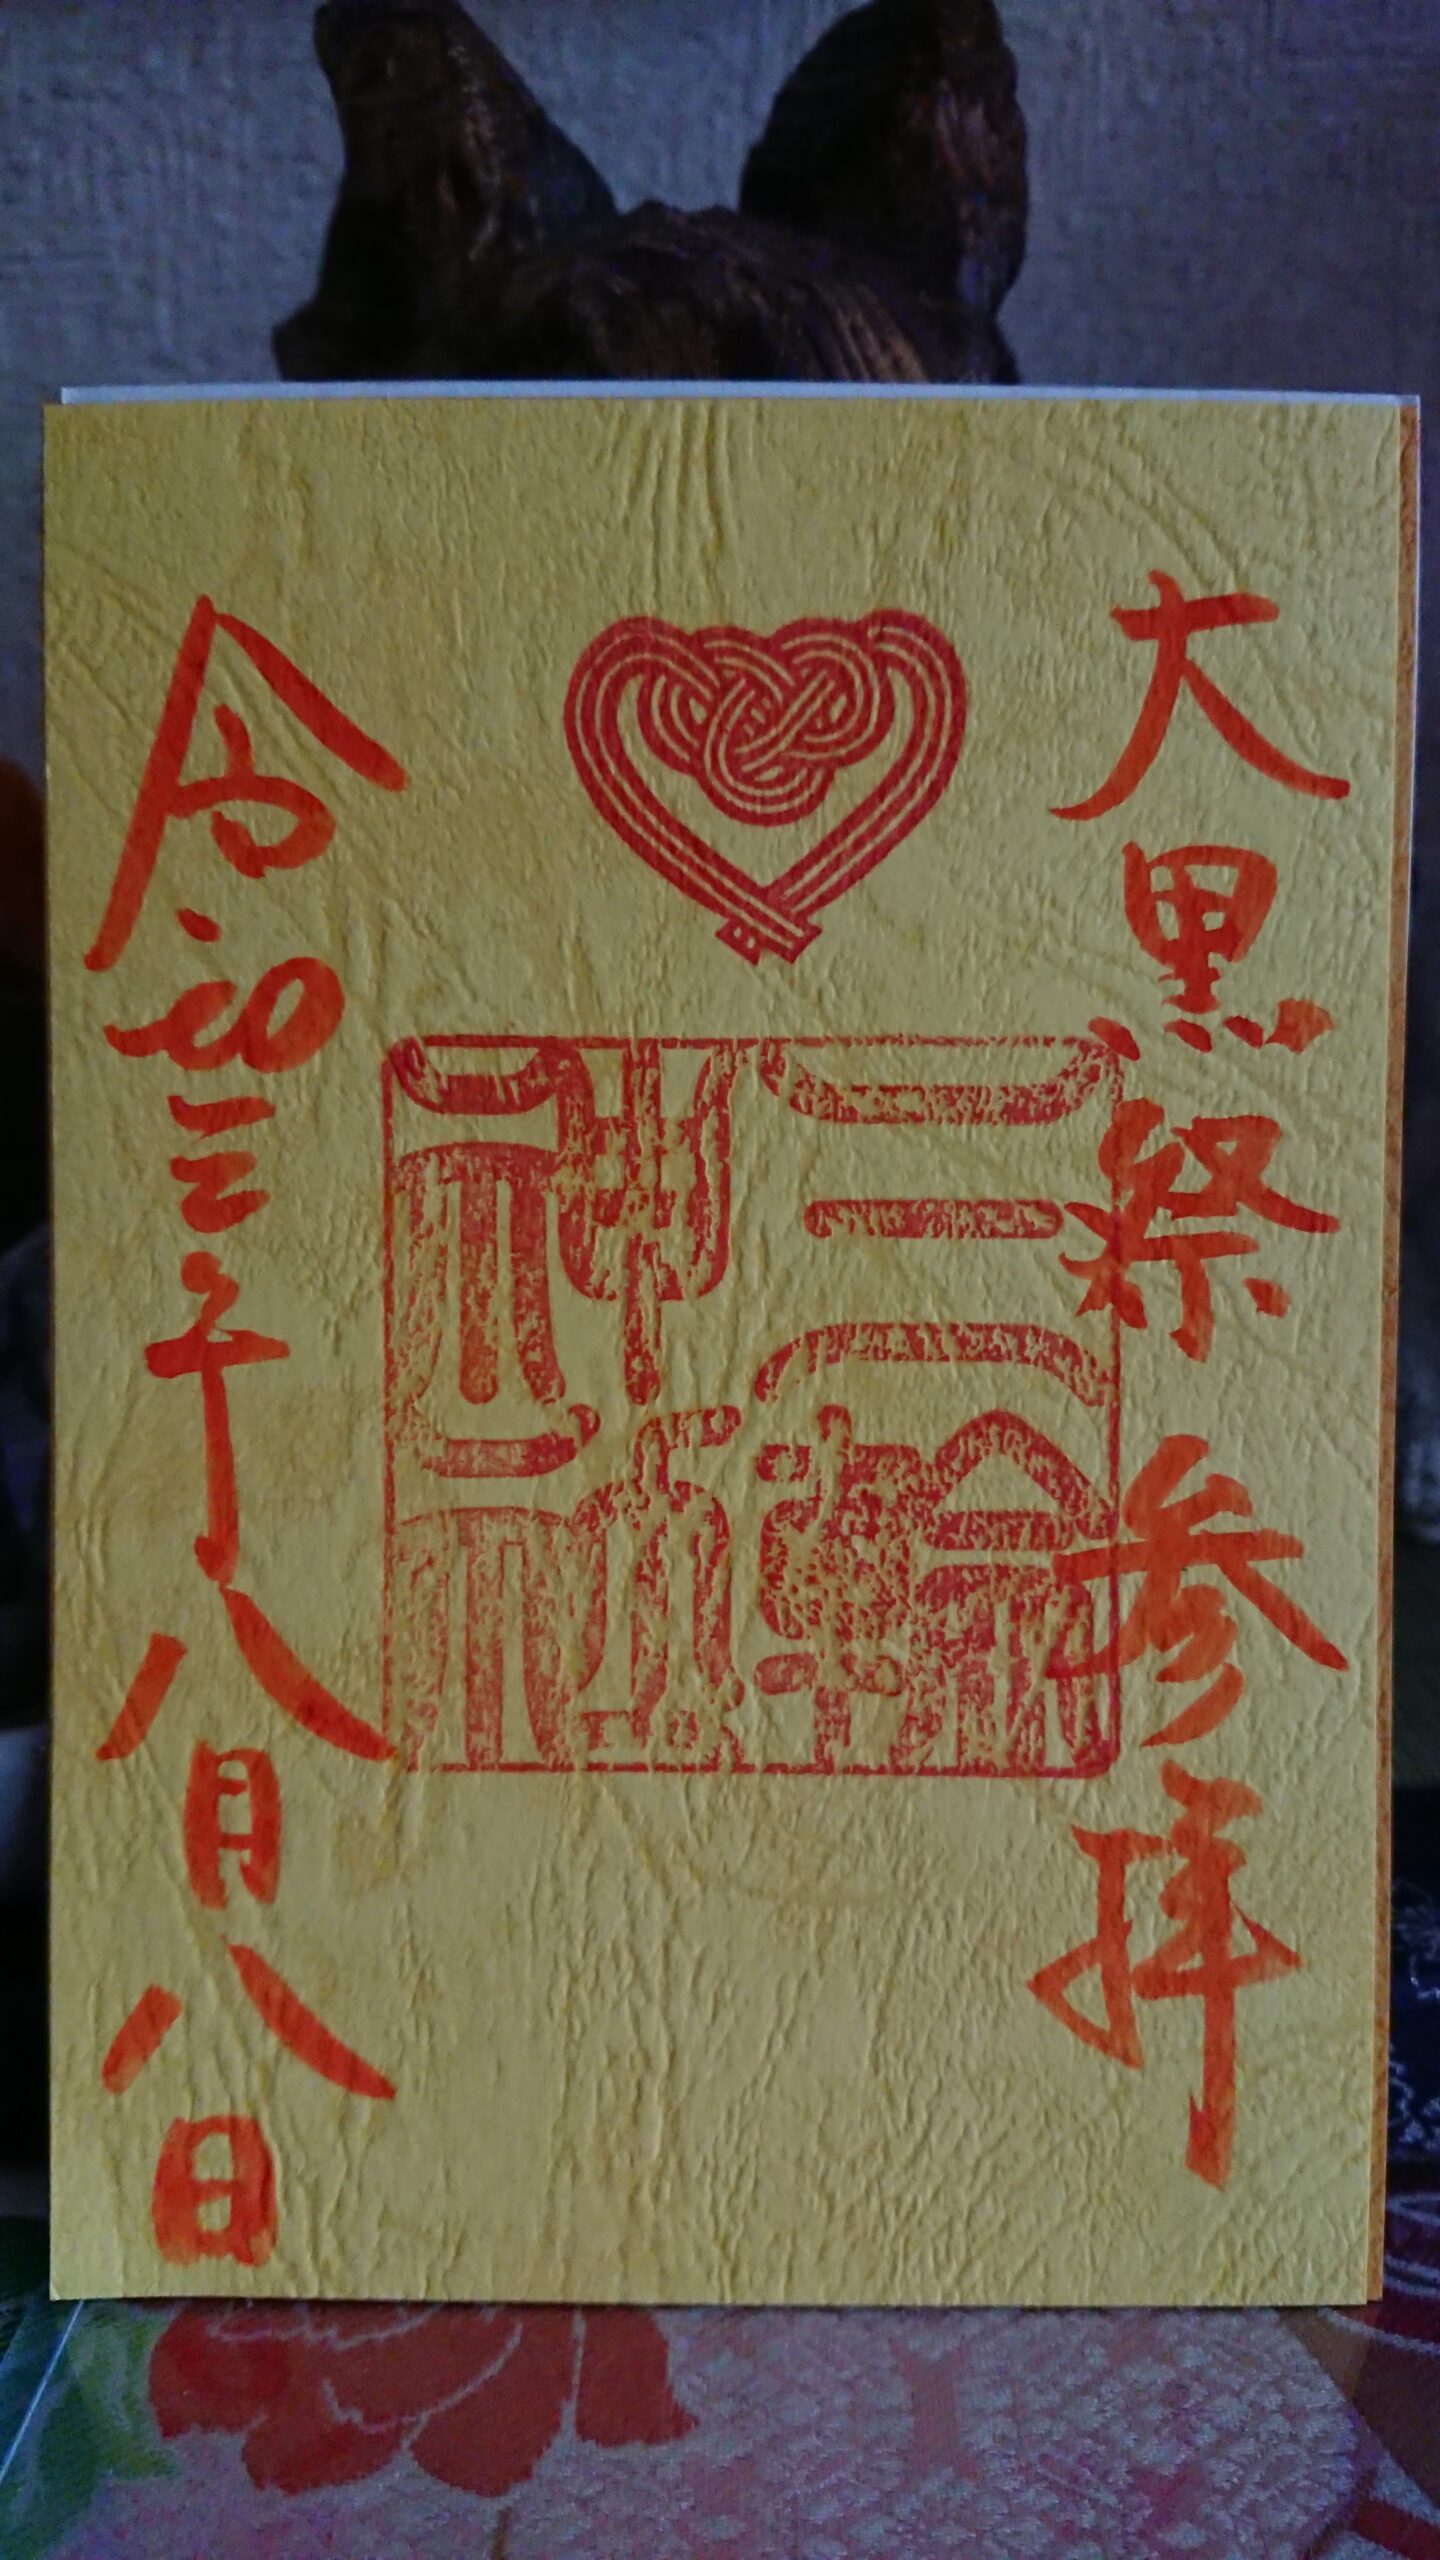 大黒祭参拝
三輪神社
令和三年八月八日